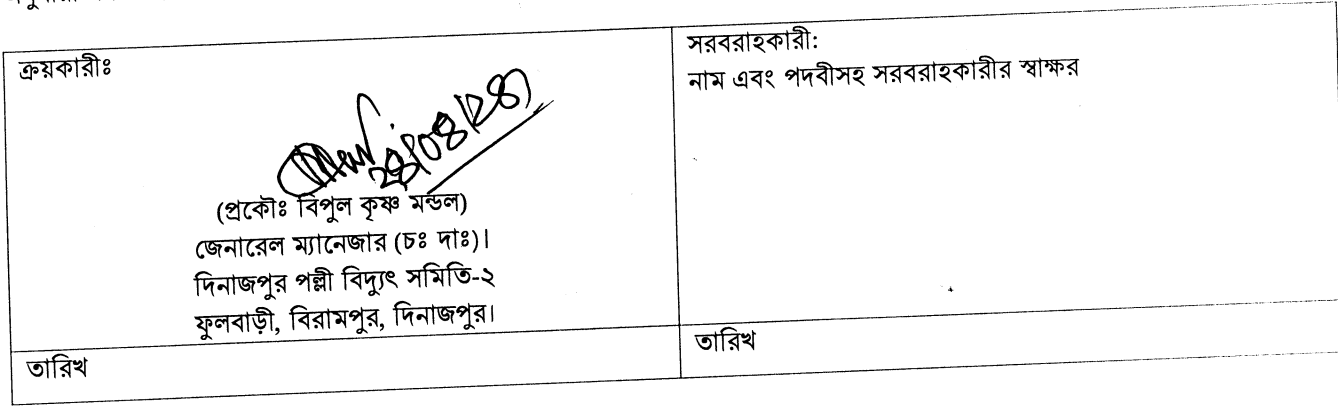 ক্রয়কারীঃ
(প্রকৌঃ বিপুল কৃষ্ণ মন্ডল)
জেনারেল ম্যানেজার (চঃ দাঃ)।
দিনাজপুর পল্লী বিদ্যুৎ সমিতি-২
ফুলবাড়ী, বিরামপুর, দিনাজপুর।
তারিখ
সরবরাহকারী:
নাম এবং পদবীসহ সরবরাহকারীর স্বাক্ষর
তারিখ